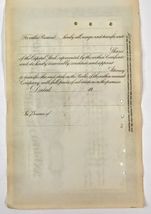 For value Received, hereby sell, assign and transfer unto
Shares
of the Capital Stock represented by the within Certificate
and do hereby irrevocably constitute and appoint
Attorney
to transfer the said stock on the Books of the within named
Company with full power of substitution in the premises.
Dated
In Presence of